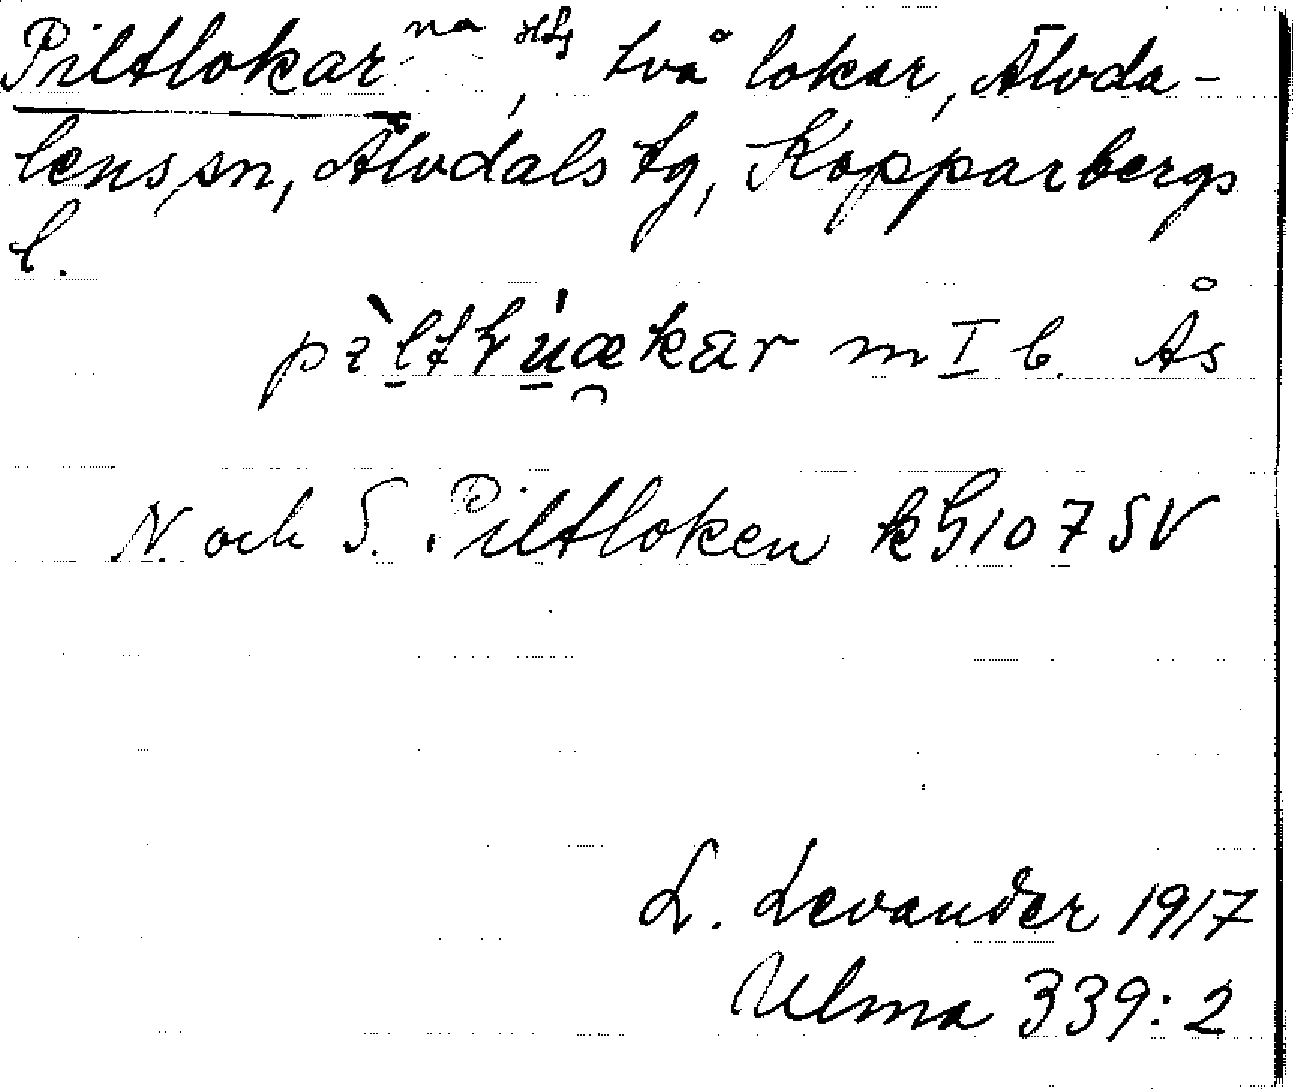 Piltlokarna, två lokar, Älvda-
lens sn, Älvdals tg, Kopparbergs
l.
m I b. Ås
N. och S. Piltloken 107 SV
L. Levander 1917
Ulma 339:2